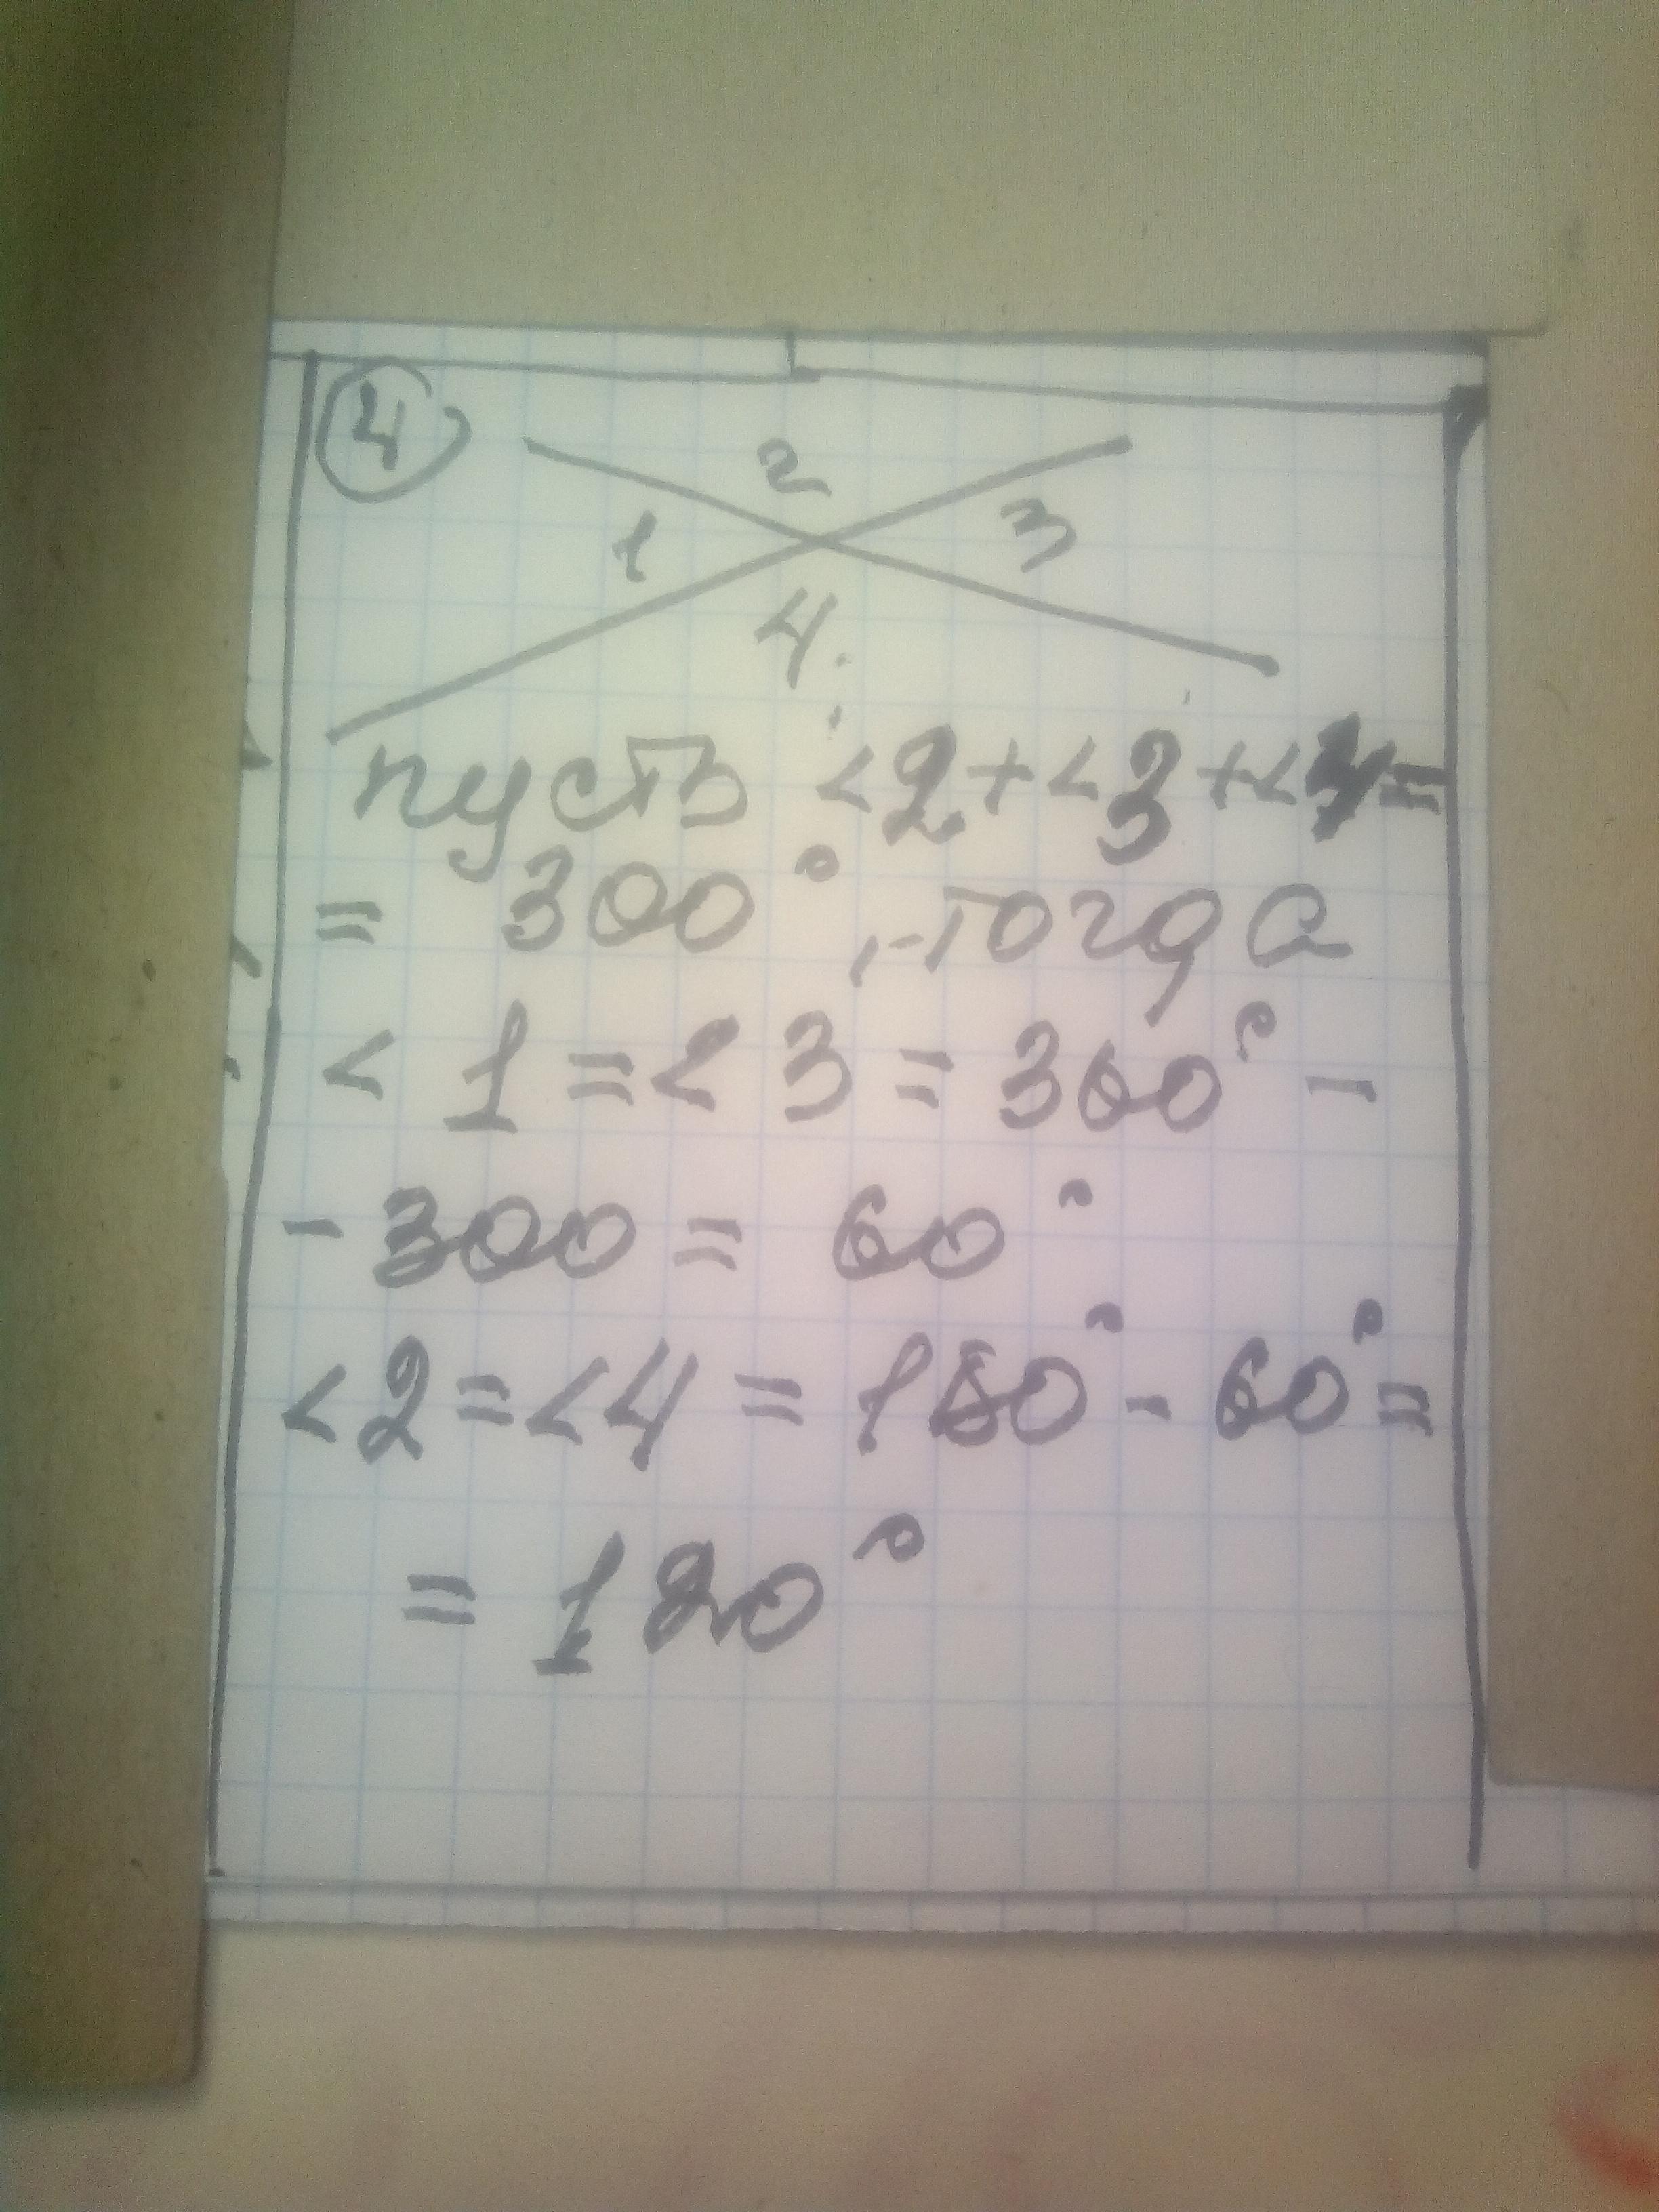 4
2
1
3
4.
пусть <2+<3+<4=
= 300°, тогда
< 1 = < 3 = 360° -
- 300 = 60°
<2=<4 = 180° - 60° =
= 120°